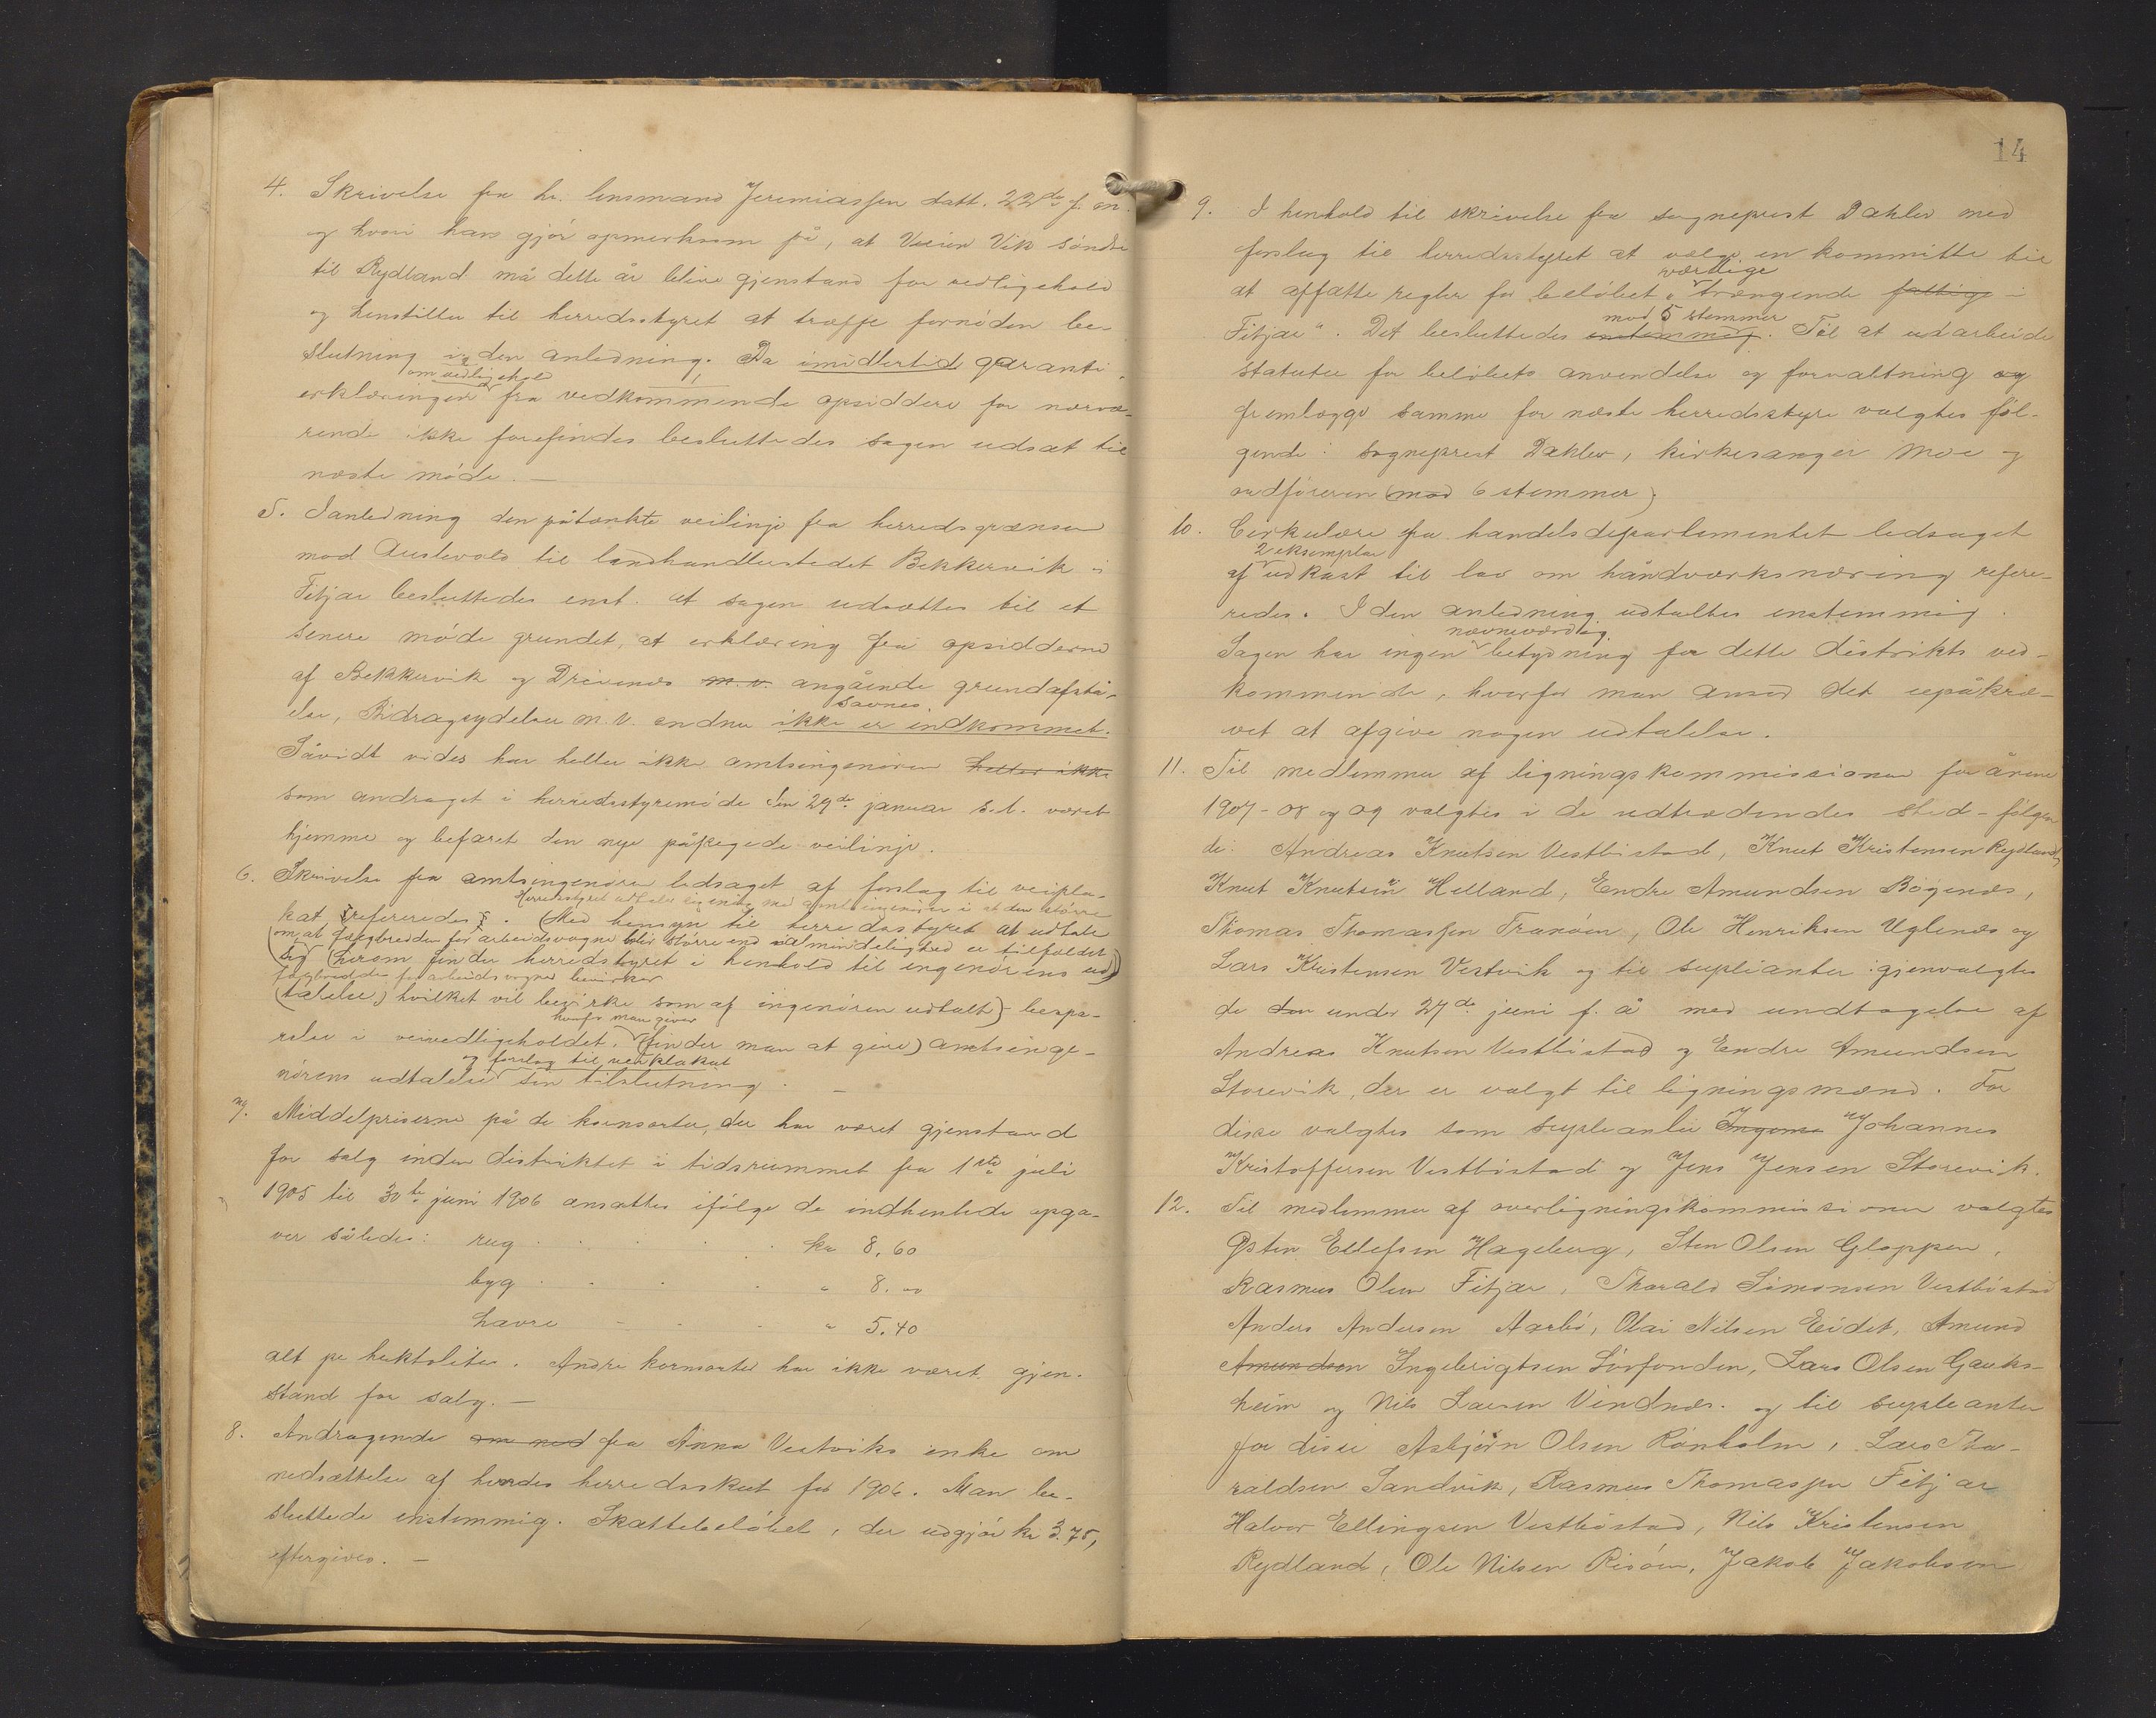 4. Skrivelse fra hr. lensmand Jeremiassen datt. 22de f. m.
og hvori han gjør opmerksom på, at Veien Vik søndre
til Rydland må dette år blive gjenstand for vedligehold
og henstiller til herredsstyret at træffe fornøden be-
slutning i den anledning. Da imidlertid garanti-
om vedligehold
erklæringer fra vedkommende opsiddere for nærvæ-
rende ikke forefindes besluttedes sagen udsat til
næste møde. —
5. I anledning den påtænkte veilinje fra herredsgrænsen
mod Austevold til landhandlerstedet Bekkervik i
Fitjar besluttedes enst. at sagen udsættes til et
senere møde grundet, at erklæring fra opsidderne
af Bekkervik og Drivenes m. v. angående grundafstå-
savnes
else, Bidragsydelser m. v. endnu ikke er indkommet.
Såvidt vides har heller ikke amtsingeniøren heller ikke
som andraget i herredsstyremøde den 29de januar s. l. været
hjemme og befaret den nye påpegede veilinje.
6. Skrivelse fra amtsingeniøren ledsaget af forslag til veipla-
Herredsstyret udtaler sig enig med amtsingeniøren i at den større
kat (refereredes). (Med hensyn til herredsstyret at udtale
(om, at fælgbredden for arbeidsvogne blir større end almindelighed er tilfældet
sig (herom finder herredsstyret i henhold til ingeniørens ud)
fælgbredde for arbeidsvogne bevirker
(talelse) hvilket vil bevirke som af ingeniøren udtalt) bespa-
hvorfor man giver
relse i veivedligeholdet. (finder man at give) amtsinge-
og forslag til veiplakat
niørens udtalelse sin tilslutning. —
7. Middelpriserne på de kornsorter, der har været gjenstand
for salg inden distriktet i tidsrummet fra 1ste juli
1905 til 30te juni 1906 ansattes ifølge de indhentede opga-
ver således: rug . . . . kr 8,60
byg . . . . " 8.00
havre . . . . " 5.40
alt pr hektoliter. Andre kornsorter har ikke været gjen-
stand for salg. —
8. Andragende om ned fra Anna Vestviks enke om
nedsættelse af hendes herredsskat for 1906. Man be-
sluttede enstemmig. Skattebeløbet, der udgjør kr 3.75,
eftergives. —
14
9. I henhold til skrivelse fra sogneprest Dahler med
forslag til herredsstyret at vælge en kommitte til
værdige
at affatte regler for beløbet „trængende fattige i
med 5 stemmer
Fitjar". Det besluttedes enstemmig. Til at udarbeide
statuter for beløbets anvendelse og forvaltning og
fremlægge samme for næste herredsstyre valgtes føl-
gende: sogneprest Dahler, kirkesanger Moe og
ordføreren (med 6 stemmer)
10. Cirkulære fra handelsdepartementet ledsaget
2 eksemplar
af udkast til lov om håndverksnæring refere-
redes. I den anledning udtaltes enstemmig.
nævneværdig
Sagen har ingen betydning for dette distrikts ved-
kommende, hvorfor man anser det upåkræ-
vet at afgive nogen udtalelse.
11. Til medlemmer af ligningskommissionen for årene
1907-08 og 09 valgtes i de udtrædendes sted følgen
de: Andreas Knutsen Vestbøstad, Knut Kristensen Rydland,
Knut Knutsen Helland, Endre Amundsen Bøgenæs,
Thomas Thomassen Tranøen, Ole Henriksen Uglenæs og
Lars Kristensen Vestvik og til suplianter gjenvalgtes
de den under 27de juni f. å med undtagelse af
Andreas Knutsen Vestbøstad og Endre Amundsen
Storevik, der er valgt til ligningsmænd. For
disse valgtes som supleanter Ingeme Johannes
Kristoffersen Vestbøstad og Jens Jensen Storevik.
12. Til medlemmer af overligningskommissionen valgtes
Østen Ellefsen Hageberg, Sten Olsen Gloppen,
Rasmus Olsen Fitjar, Tharald Simonsen Vestbøstad
Anders Andersen Aarbø, Olai Nilsen Eidet, Amund
Amundsen Ingebrigtsen Sørfonden, Lars Olsen Gauks-
heim og Nils Larsen Vindnæs. og til supleanter
for disse Asbjørn Olsen Rønholm, Lars Tha-
raldsen Sandvik, Rasmus Thomassen Fitjar
Halvor Ellingsen Vestbøstad, Nils Kristensen
Rydland, Ole Nilsen Risøen, Jakob Jakobsen